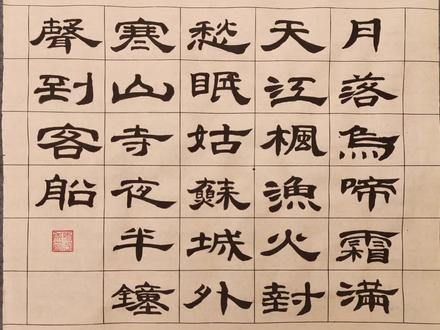 月落烏啼霜滿
天江楓漁火封
愁眠姑蘇城外
寒山寺夜半鐘
聲到客船